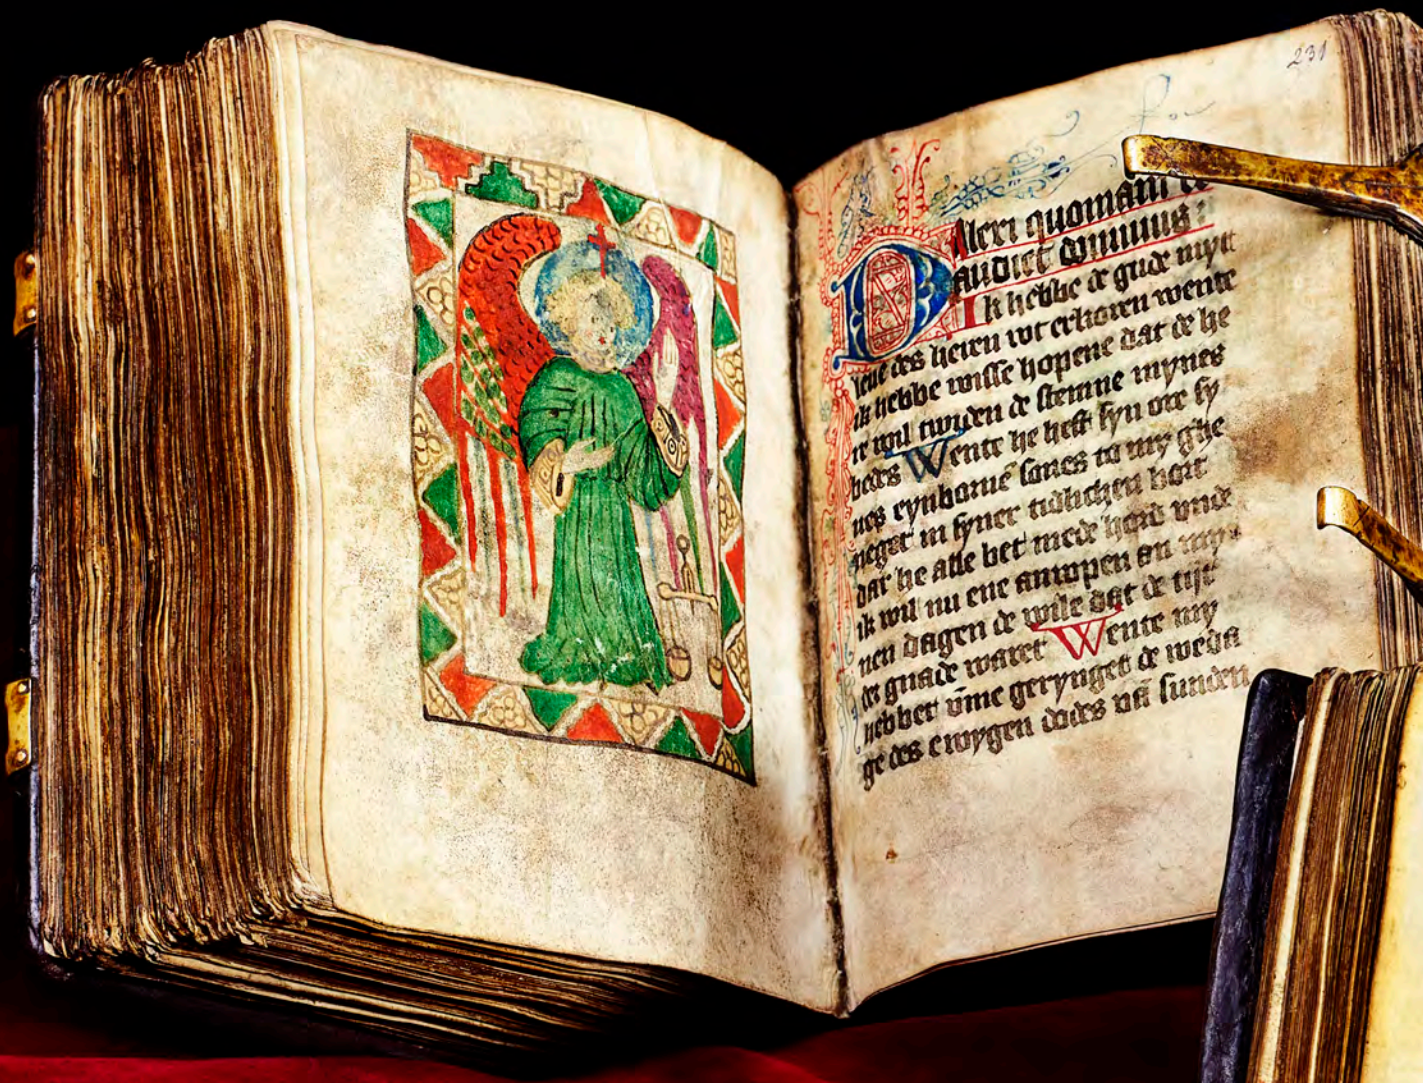 231
Dilexi quoniam
audiet dominus
Ik hebbe de gude myt
leue des heren vt erkoren wente
ik hebbe wisse hopene dat de he
re wil twyden de stemme mynes
bedes Wente he heft syn ore sy
nes eynbornē sones to my ghe
neget in syner tidlichen bort
dat he alle bet mede hord vnde
ik wil nu ene anropen an my
nen dagen de wile dat de tijt
der gnade waret Wente my
hebbet vme gerynget de weda
ge des ewygen dodes vn̄ sunden